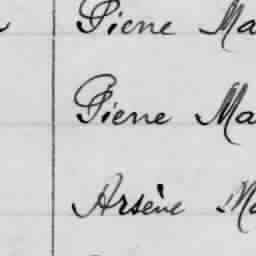 Pierre Ma
Pierre Ma
Arsène Ma